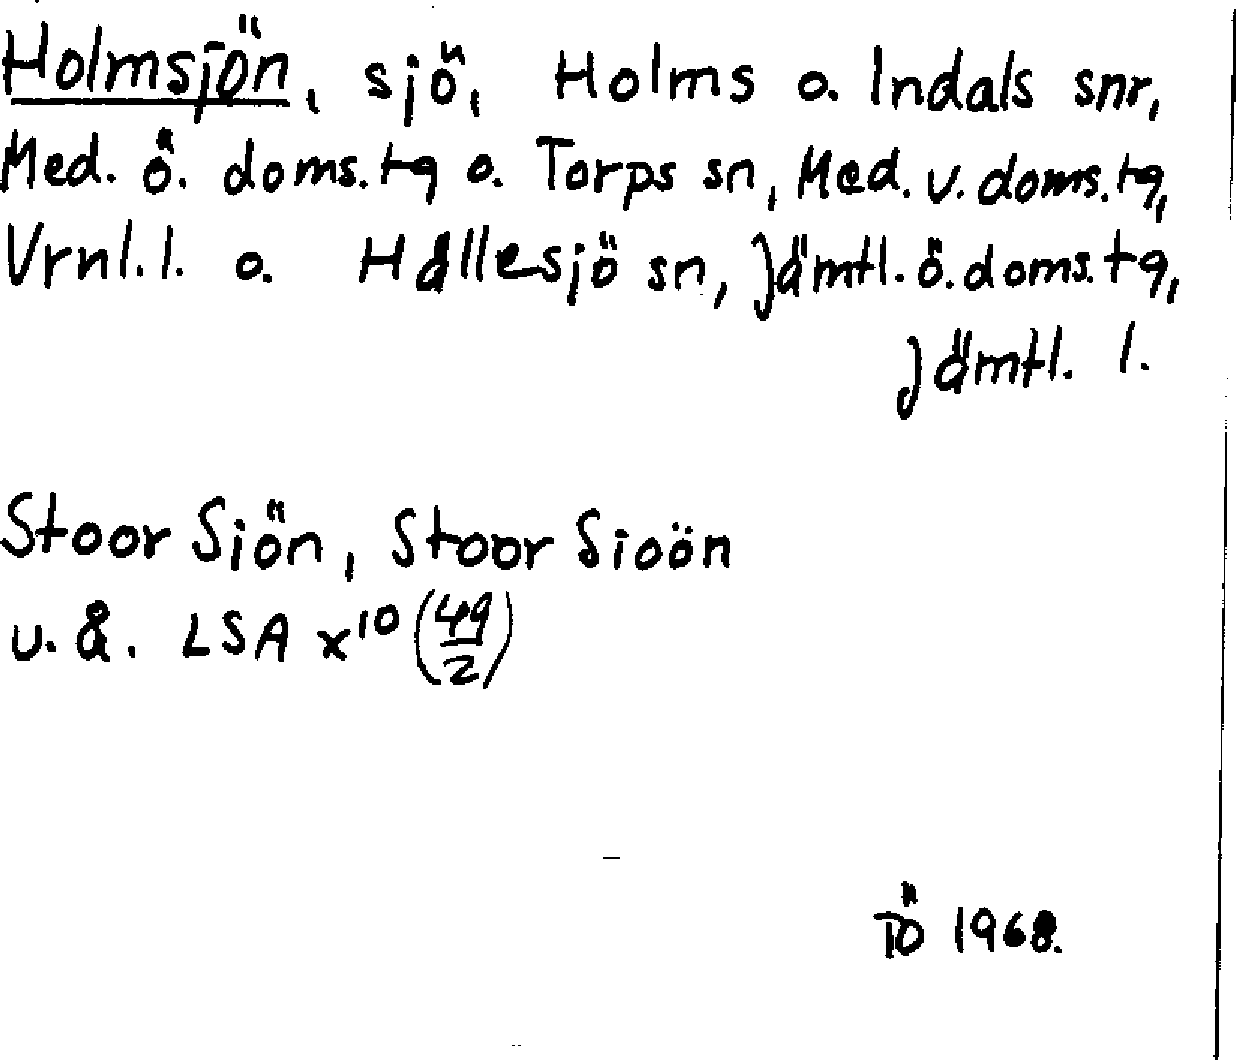 Holmsjön, sjö, Holms o. Indals snr,
Med. ö. doms.tg o. Torps sn, Med. v. doms.tg,
Vrnl. l. o. Hällesjö sn, Jämtl. ö. doms.tg,
Jämtl. l.
Stoor Siön, Stoor Sioön
u. å. LSA x¹⁰ (49/2)
TÖ 1968.